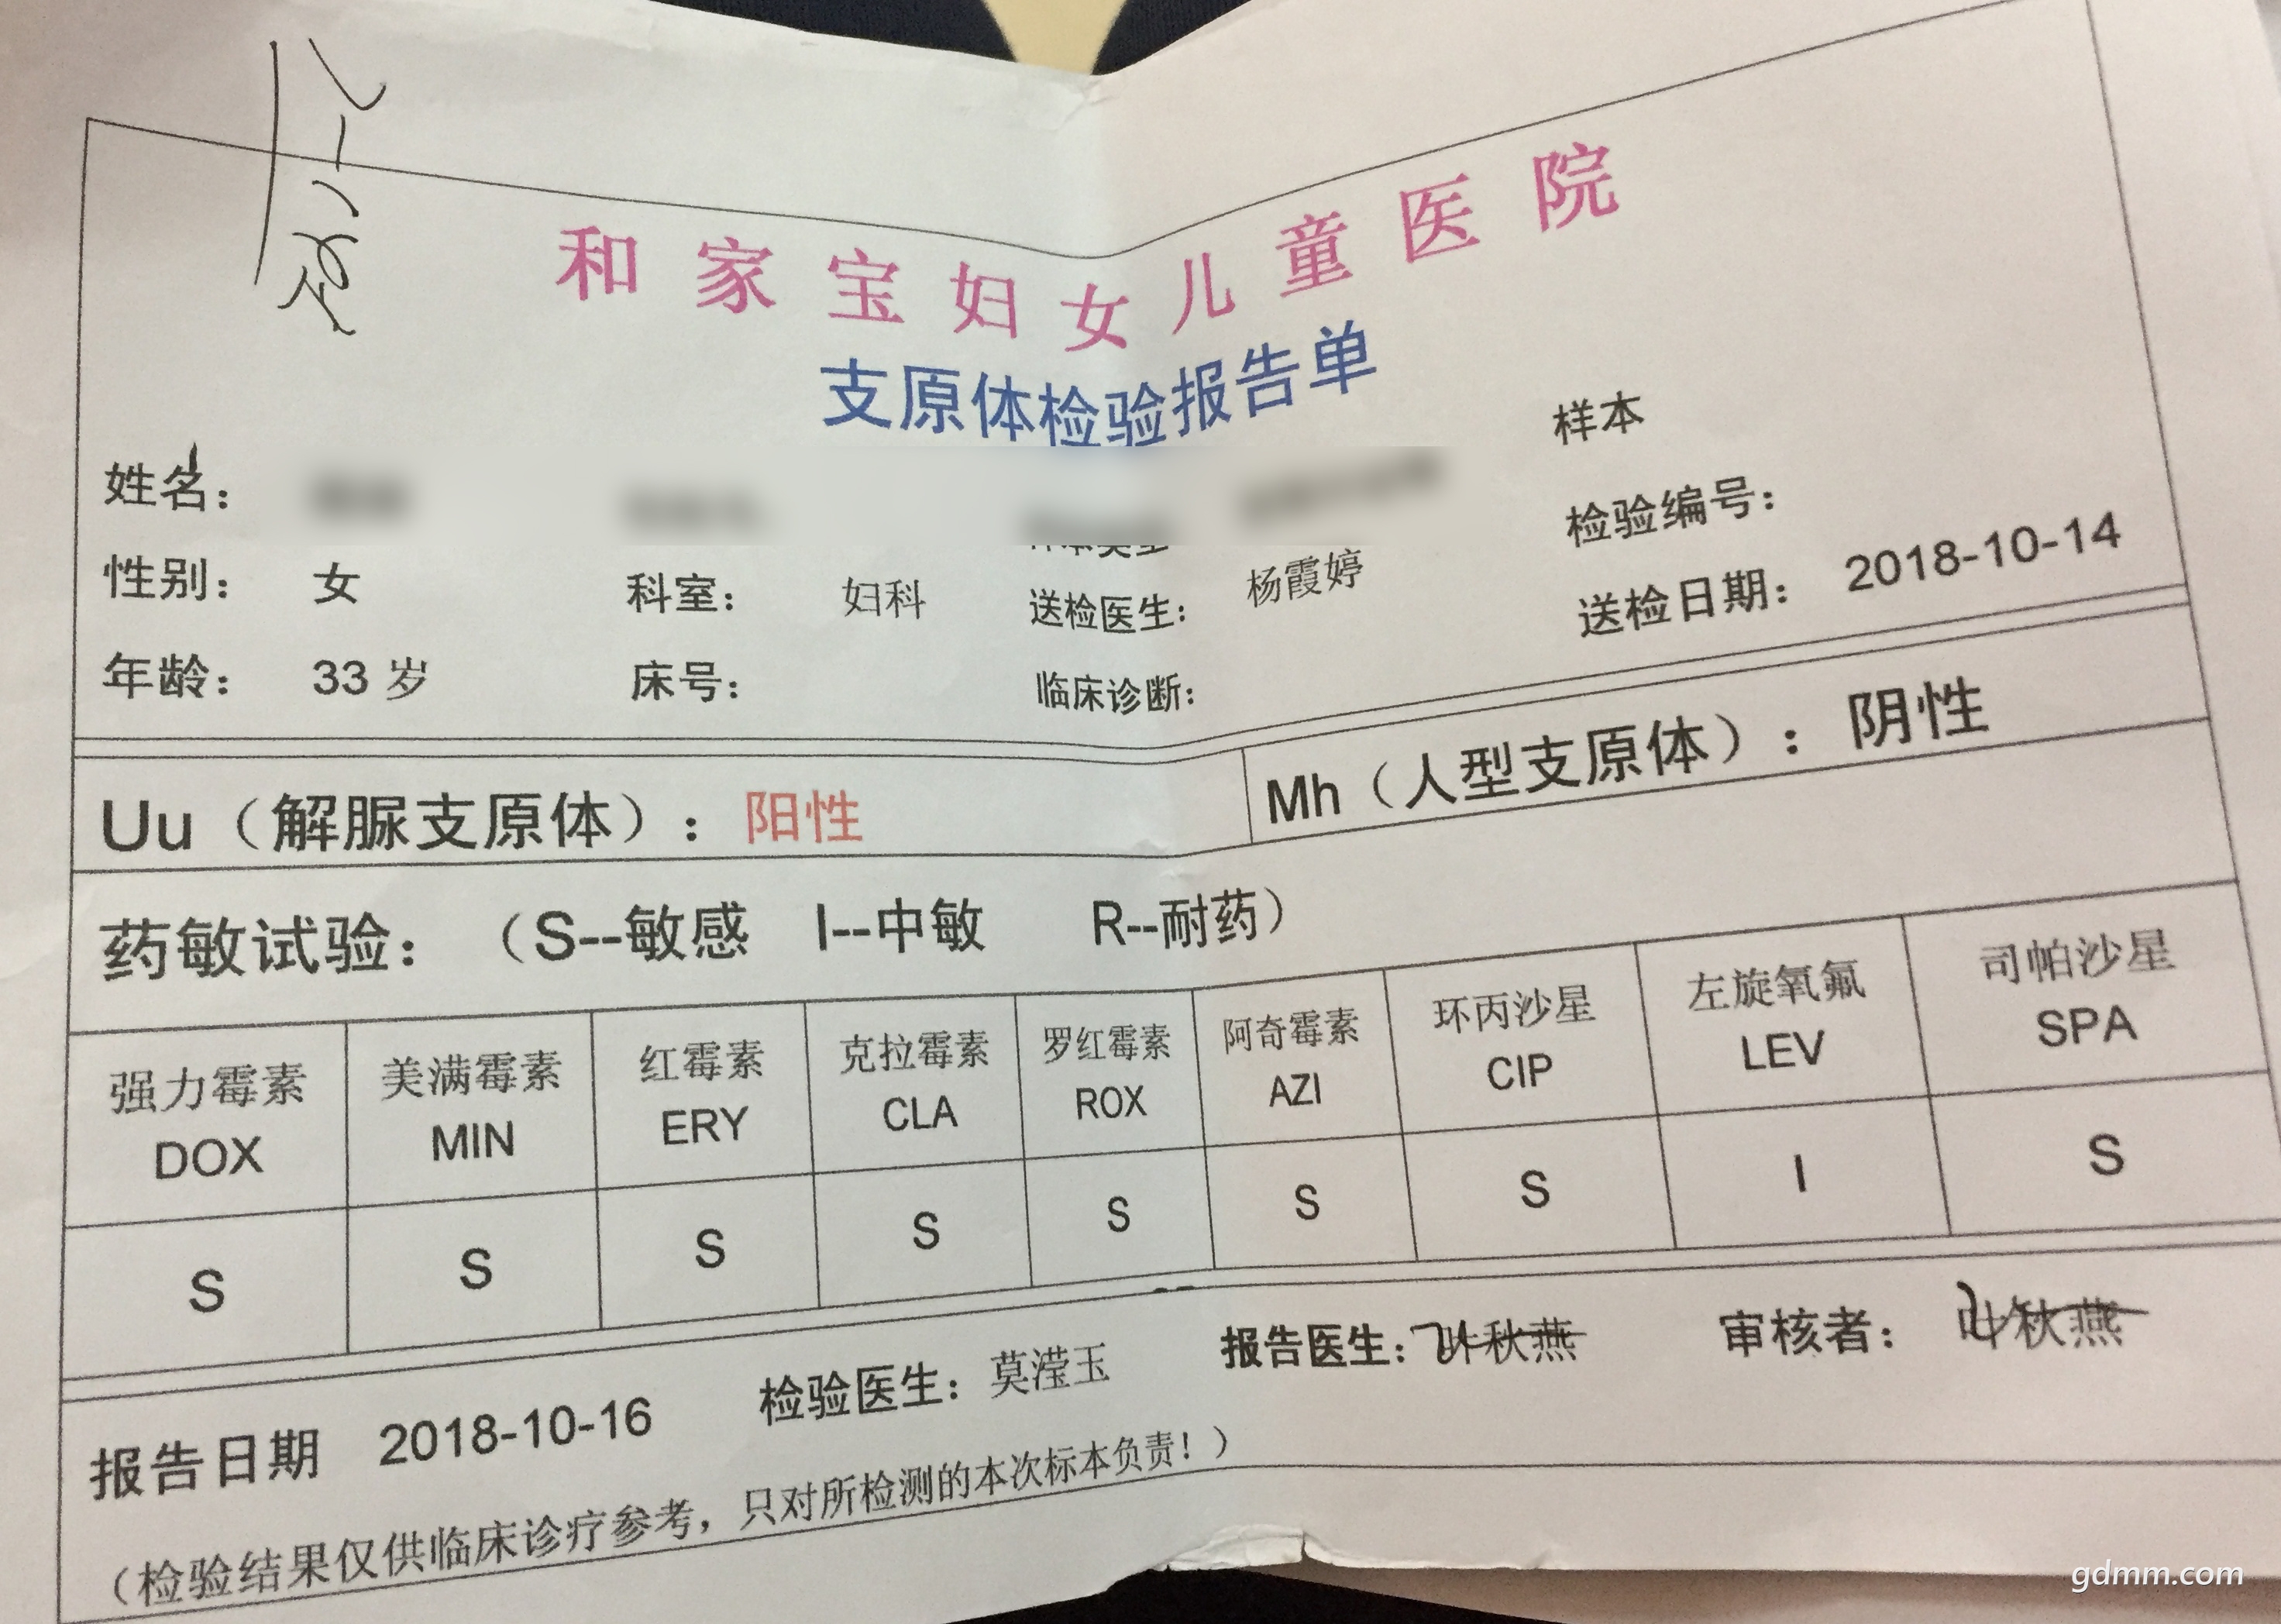 和家宝妇女儿童医院
支原体检验报告单
样本
姓名：
检验编号：
性别： 女 科室： 妇科 送检医生： 杨霞婷 送检日期： 2018-10-14
年龄： 33 岁 床号： 临床诊断：
Uu（解脲支原体）：阳性 Mh（人型支原体）：阴性
药敏试验：（S--敏感 I--中敏 R--耐药）
强力霉素 美满霉素 红霉素 克拉霉素 罗红霉素 阿奇霉素 环丙沙星 左旋氧氟 司帕沙星
DOX MIN ERY CLA ROX AZI CIP LEV SPA
S S S S S S S I S
报告日期 2018-10-16 检验医生：莫滢玉 报告医生：叶秋燕 审核者： 叶秋燕
（检验结果仅供临床诊疗参考，只对所检测的本次标本负责！）
gdmm.com